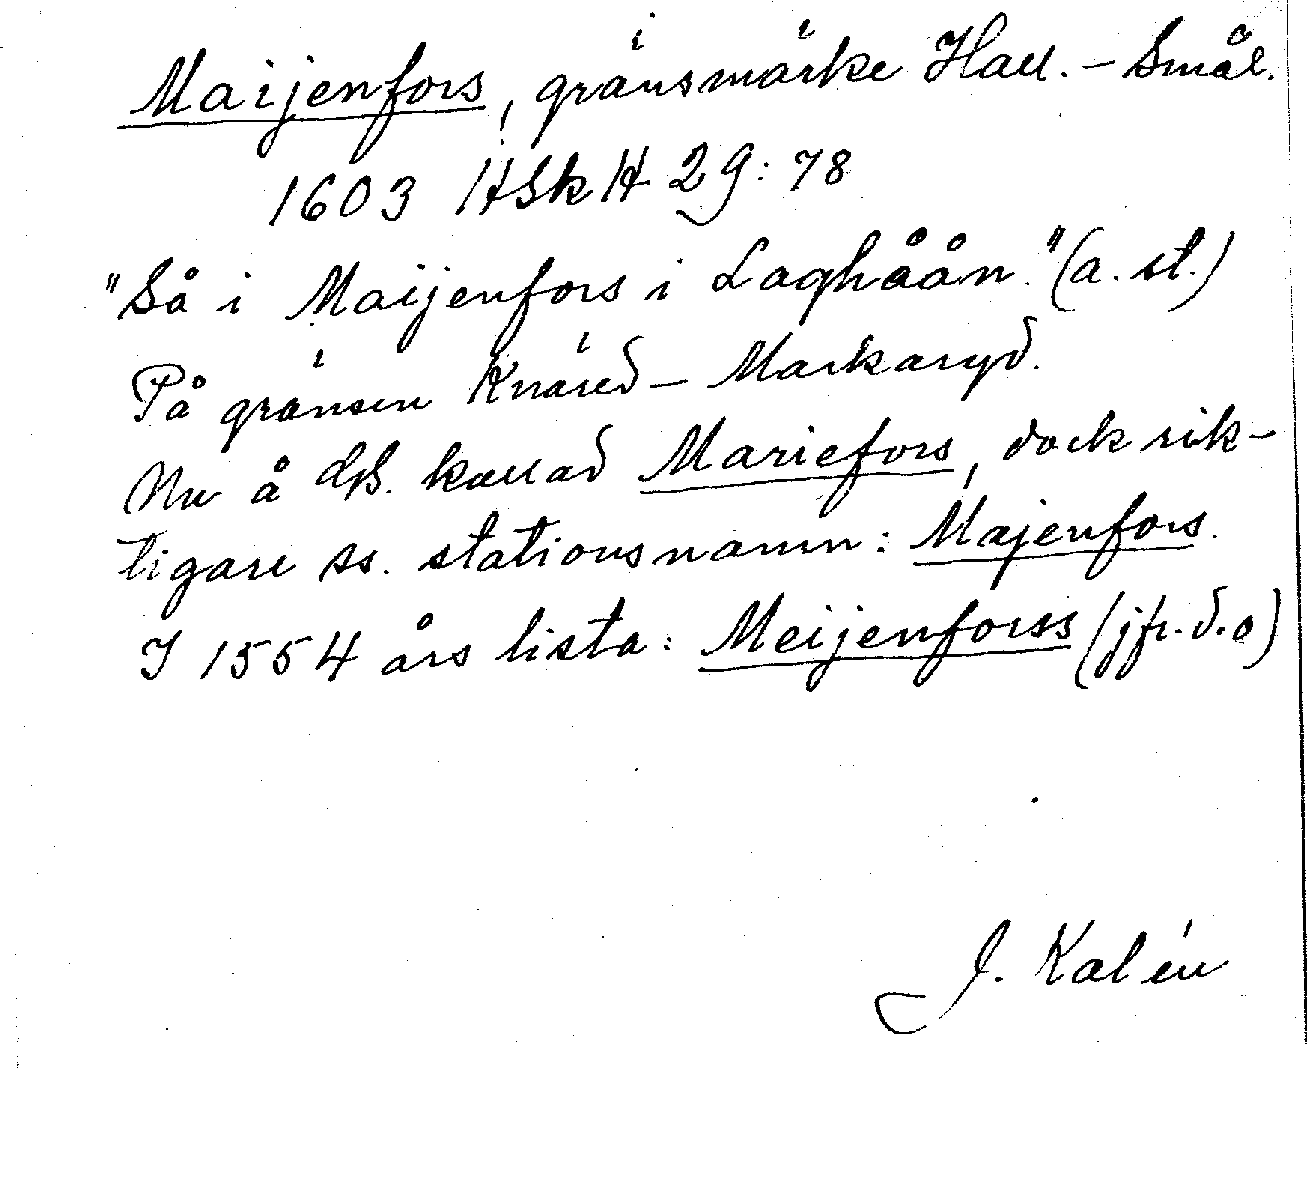 Maijenfors, gränsmärke Hall. – Smål.
1603 HSkH 29:78
"Så i Maijenfors i Laghåån." (a. st.)
På gränsen Knäred – Markaryd.
Nu å GB. kallad Mariefors, dock rik-
tigare ss. stationsnamn: Majenfors.
I 1554 års lista: Meijenforss (jfr. d. o)
J. Kalén